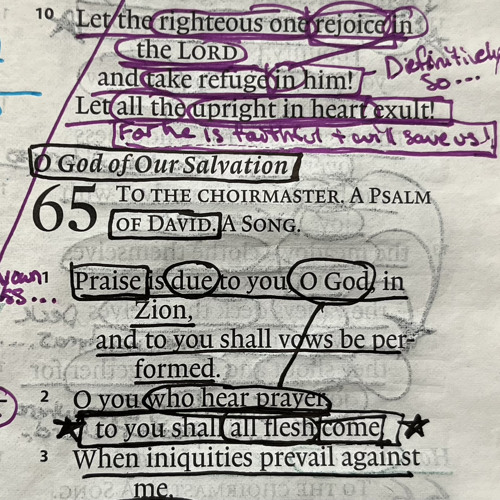 10 Let the righteous one rejoice in
the LORD
and take refuge in him! - Definitively
so...
Let all the upright in heart exult!
For he is faithful + will save us!
O God of Our Salvation
65 TO THE CHOIRMASTER. A PSALM
OF DAVID. A SONG.
1 Praise is due to you, O God, in
Zion,
and to you shall vows be per-
formed.
2 O you who hear prayer,
to you shall all flesh come.
3 When iniquities prevail against
me,